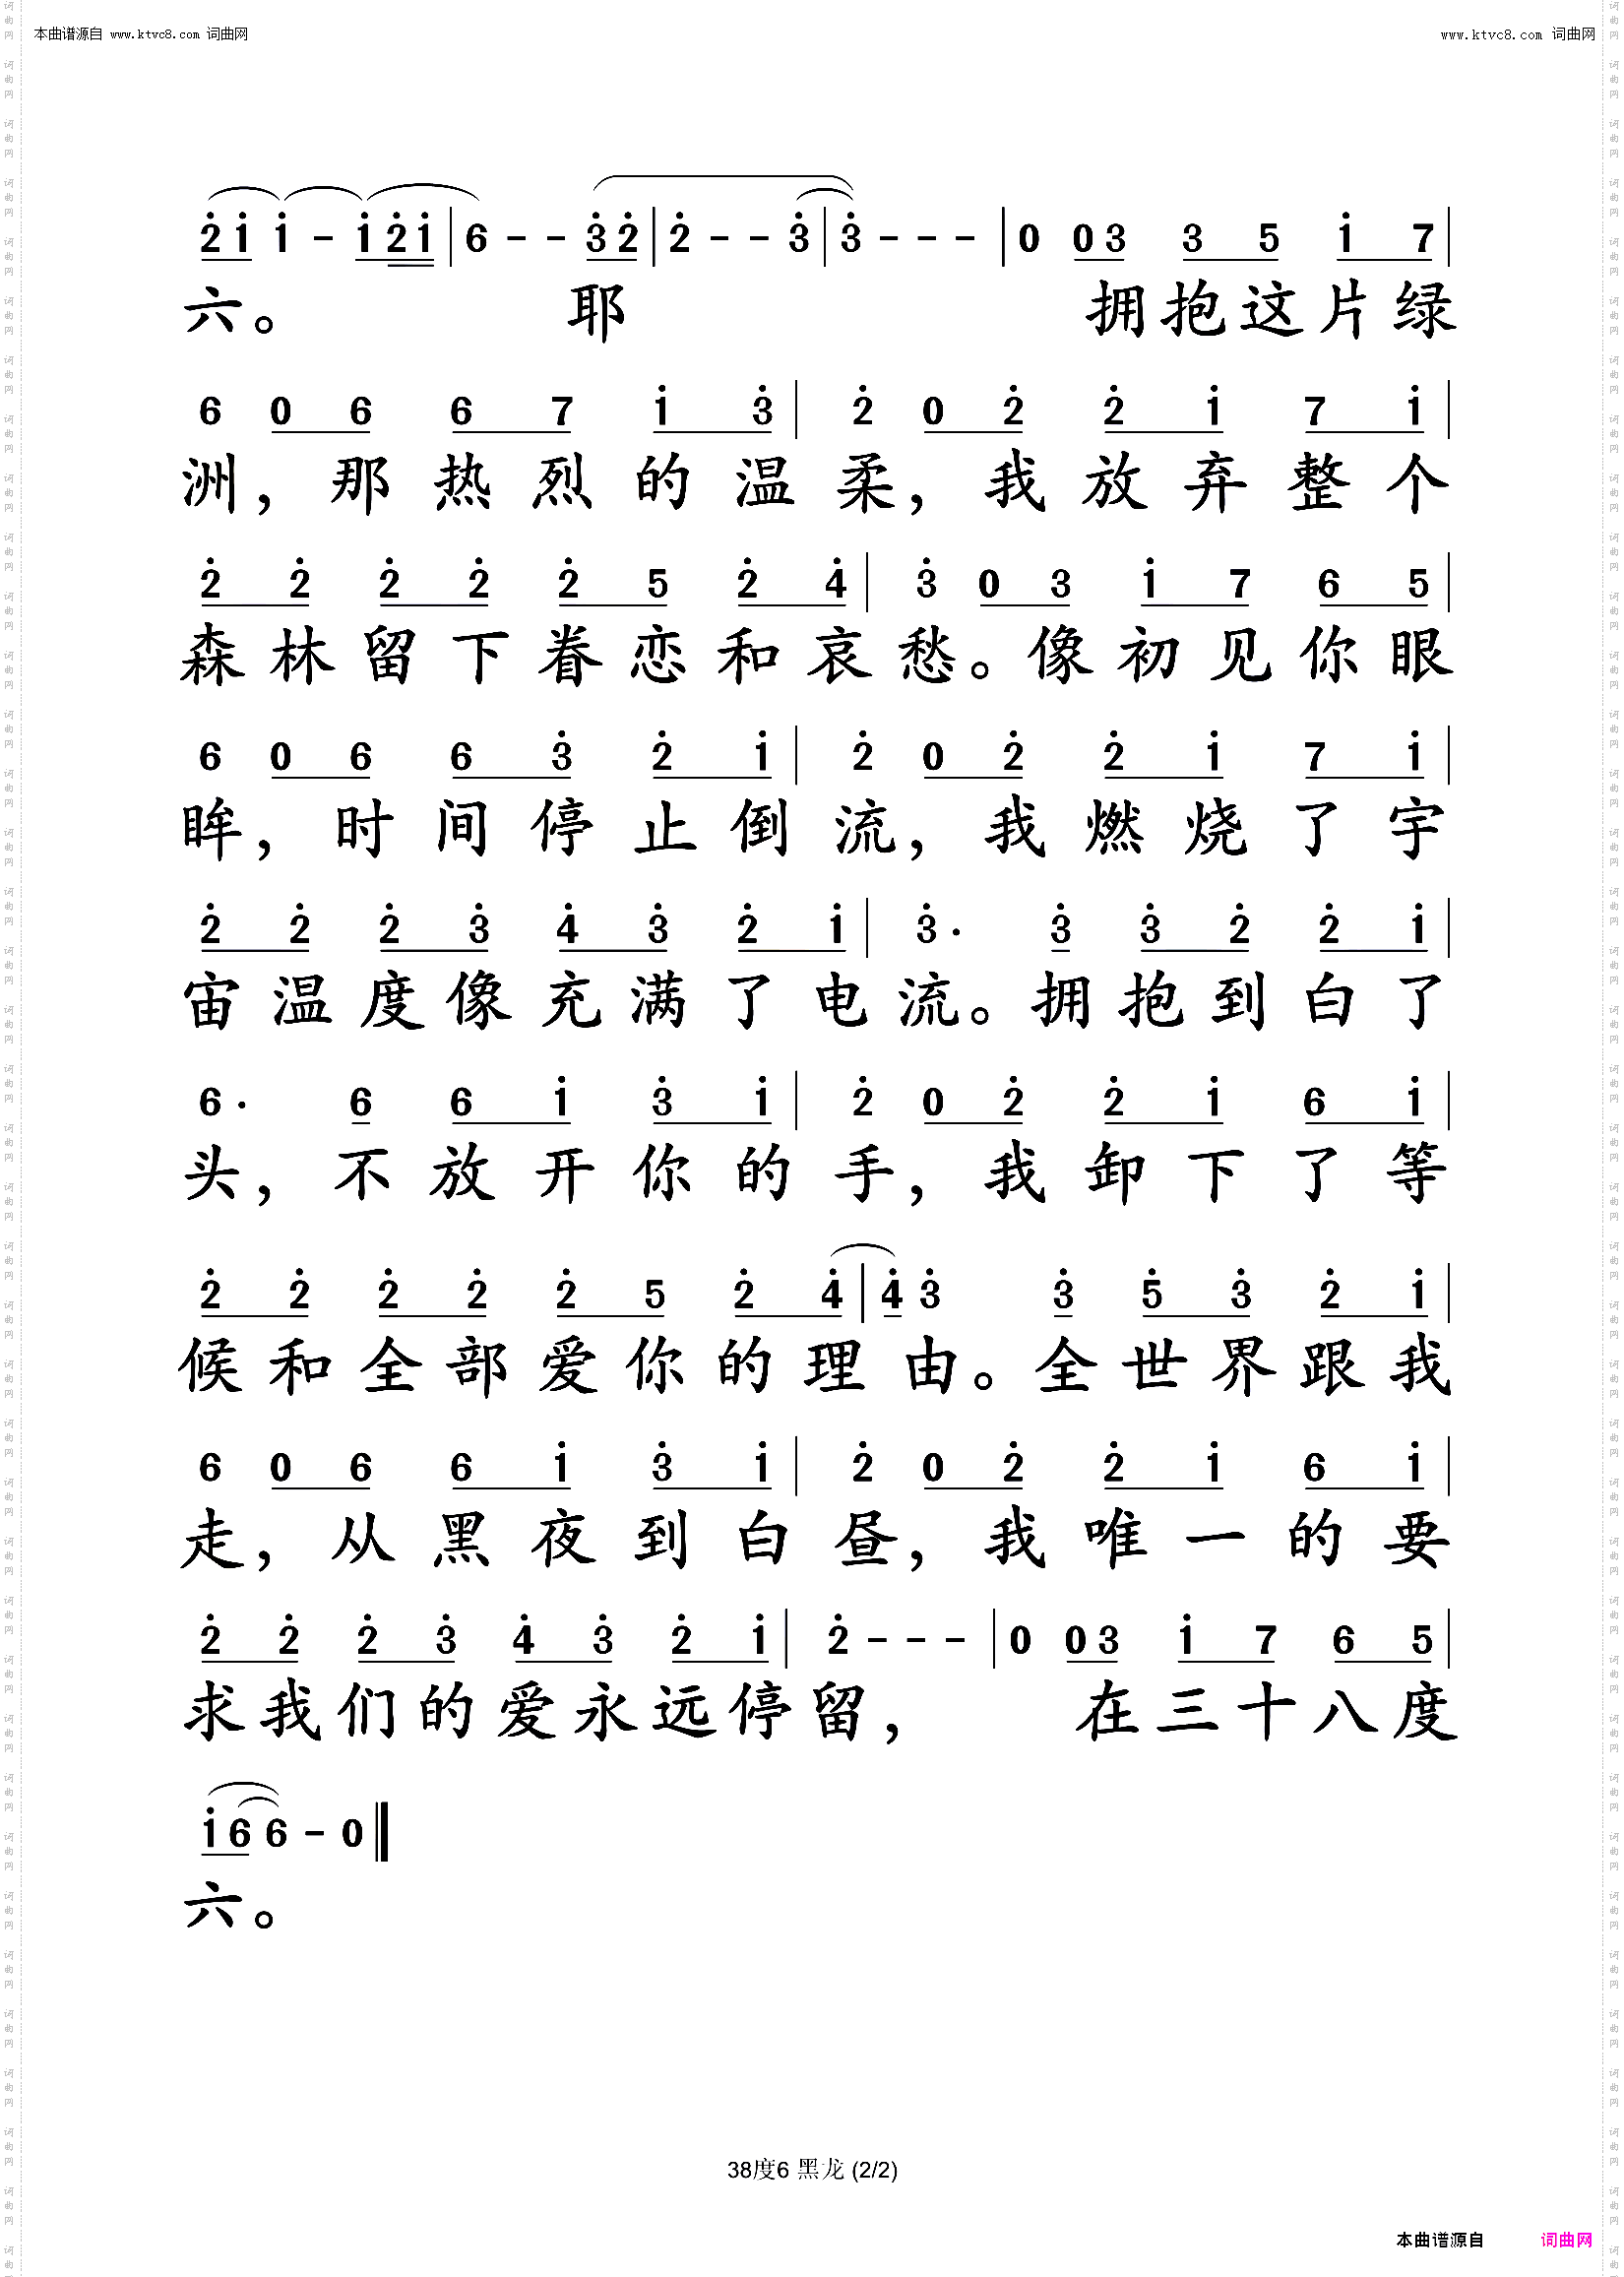 本曲谱源自 www.ktvc8.com 词曲网
www.ktvc8.com 词曲网
2̇ 1̇ 1̇ - 1̇ 2̇ 1̇ | 6 - - 3̇ 2̇ | 2̇ - - 3̇ | 3̇ - - - | 0 0 3 3 5 1̇ 7 |
六。 耶 拥抱这片绿
6 0 6 6 7 1̇ 3̇ | 2̇ 0 2̇ 2̇ 1̇ 7 1̇ |
洲，那热烈的温柔，我放弃整个
2̇ 2̇ 2̇ 2̇ 2̇ 5 2̇ 4̇ | 3̇ 0 3 1̇ 7 6 5 |
森林留下眷恋和哀愁。像初见你眼
6 0 6 6 3̇ 2̇ 1̇ | 2̇ 0 2̇ 2̇ 1̇ 7 1̇ |
眸，时间停止倒流，我燃烧了宇
2̇ 2̇ 2̇ 3̇ 4̇ 3̇ 2̇ 1̇ | 3̇. 3̇ 3̇ 2̇ 2̇ 1̇ |
宙温度像充满了电流。拥抱到白了
6. 6 6 1̇ 3̇ 1̇ | 2̇ 0 2̇ 2̇ 1̇ 6 1̇ |
头，不放开你的手，我卸下了等
2̇ 2̇ 2̇ 2̇ 2̇ 5 2̇ 4̇ | 4̇ 3̇ 3̇ 5̇ 3̇ 2̇ 1̇ |
候和全部爱你的理由。全世界跟我
6 0 6 6 1̇ 3̇ 1̇ | 2̇ 0 2̇ 2̇ 1̇ 6 1̇ |
走，从黑夜到白昼，我唯一的要
2̇ 2̇ 2̇ 3̇ 4̇ 3̇ 2̇ 1̇ | 2̇ - - - | 0 0 3 1̇ 7 6 5 |
求我们的爱永远停留， 在三十八度
1̇ 6 6 - 0 ‖
六。
38度6 黑龙 (2/2)
本曲谱源自 词曲网